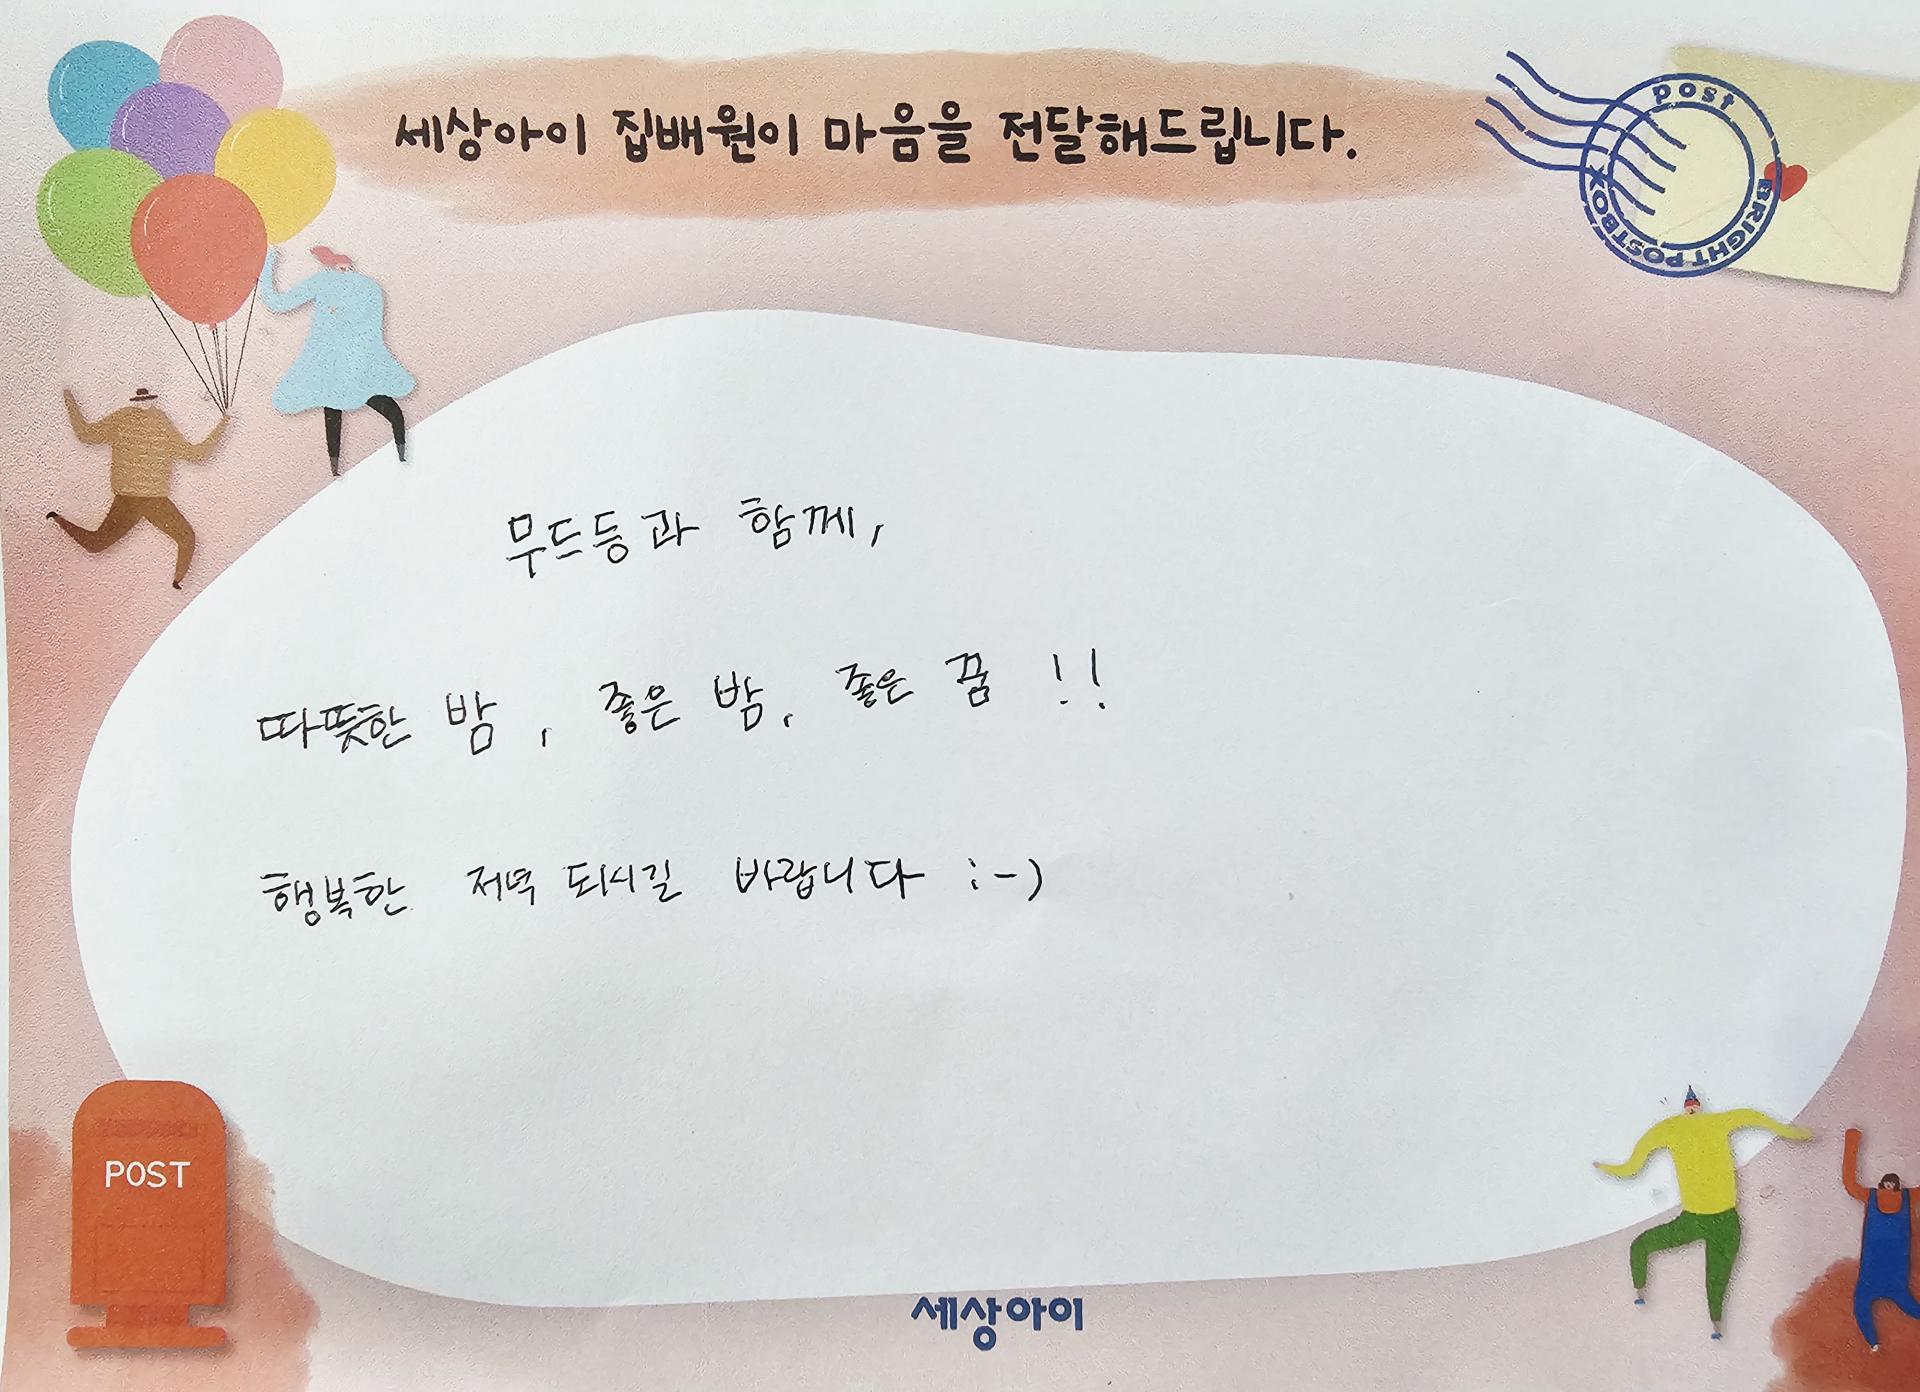 세상아이 집배원이 마음을 전달해드립니다.
post
BRIGHT POSTBOX
무드등과 함께,
따뜻한 밤, 좋은 밤, 좋은 꿈 !!
행복한 저녁 되시길 바랍니다 :-)
POST
세상아이